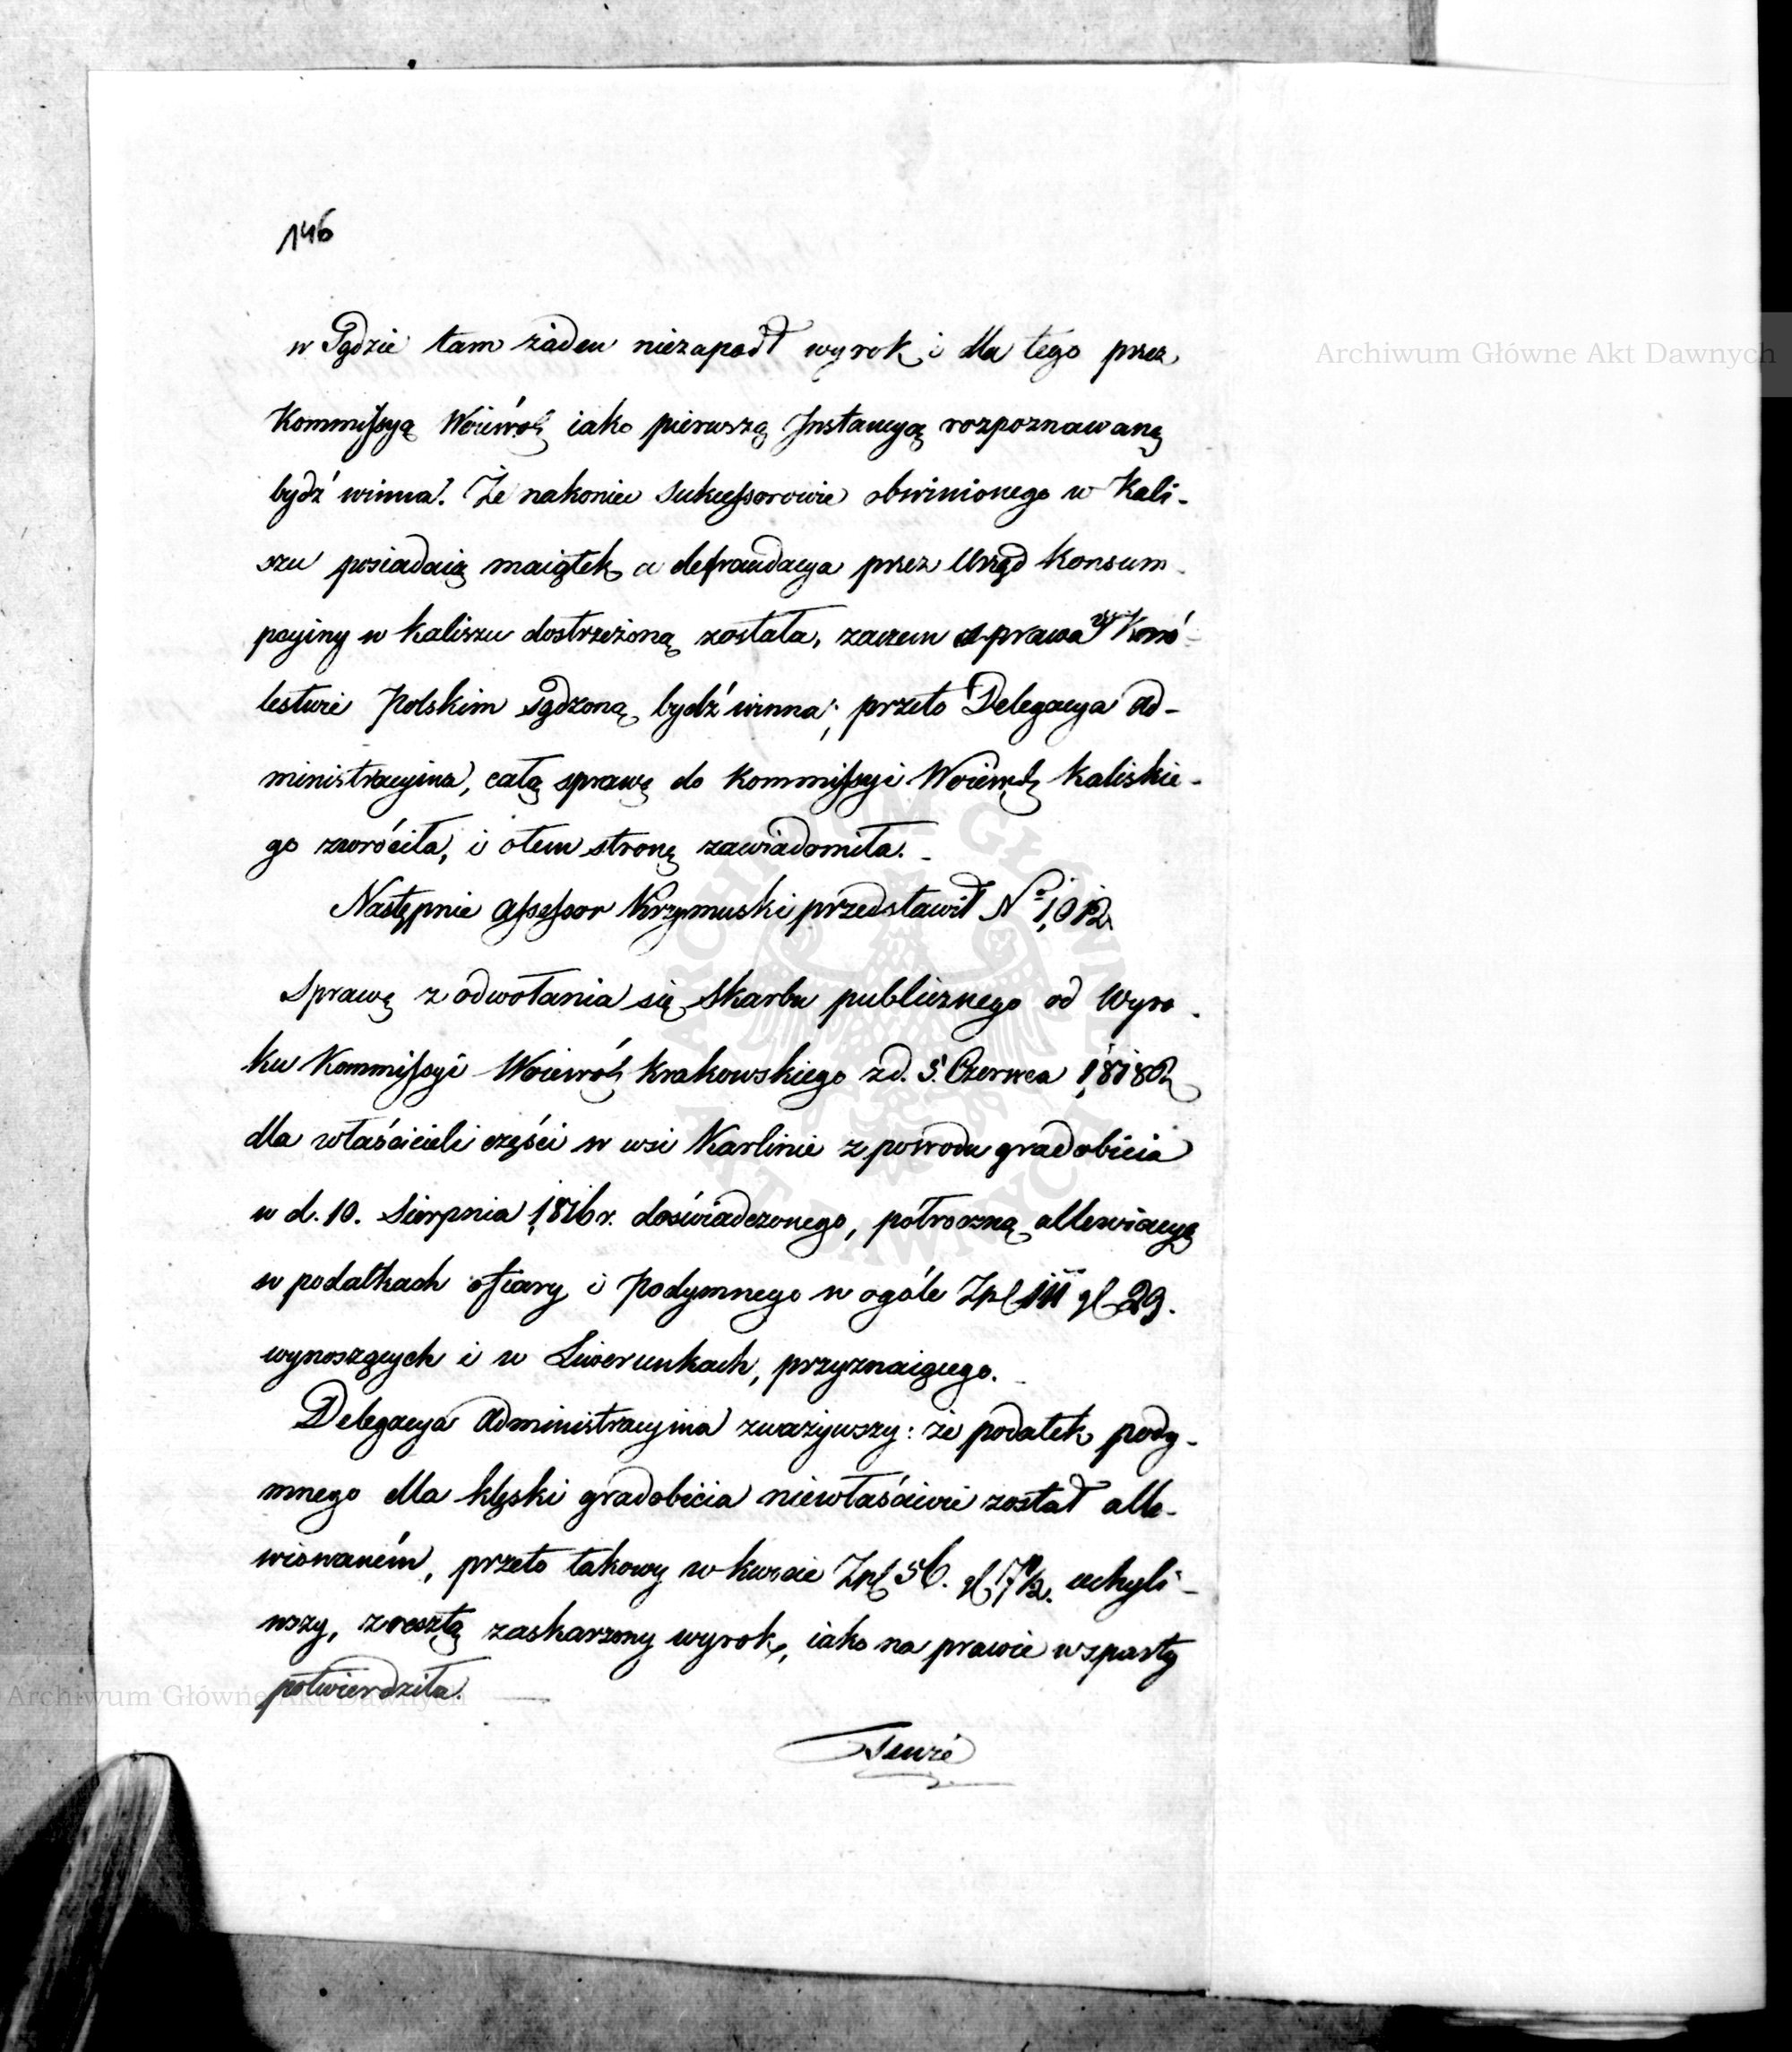 146
w Sądzie tam żaden niezapadł wyrok i dla tego przez
Kommissyą Woiewódz iako pierwszą Instancyą rozpoznawaną
bydź winna. Że nakoniec Sukcessorowie obwinionego w Kali-
szu posiadaią maiątek, a defraudacya przez Urząd Konsum-
pcyiny w Kaliszu dostrzeżoną została, zaczem sprawa w Kró-
lestwie Polskim sądzoną bydź winna; przeto Delegacya Ad-
ministracyina, całą sprawę do Kommissyi Woiewdz Kaliskie-
go zwróciła, i otem stronę zawiadomiła.
Następnie Assessor Krzymuski przedstawił No 1,012
Sprawę z odwołania się Skarbu publicznego od Wyro-
ku Kommissyi Woiewódz Krakowskiego z d. 5. Czerwca 1818
dla właścicieli części w wsi Karlinie z powodu gradobicia
w d. 10. Sierpnia 1816 r. doświadczonego, półroczną allewiacyę
w podatkach ofiary i Podymnego w ogóle Zpl 111 gl 29.
wynoszących i w Liwerunkach, przyznaiącego.
Delegacya Administracyina zważywszy: że podatek pody-
mnego dla klęski gradobicia niewłaściwie został alle-
wiowaném, przeto takowy w kwocie Zpl 56. gl 17 1/2. uchyli-
wszy, zresztą zaskarzony wyrok, iako na prawie wsparty
potwierdziła.
Archiwum Główne Akt Dawnych
Archiwum Główne Akt Dawnych